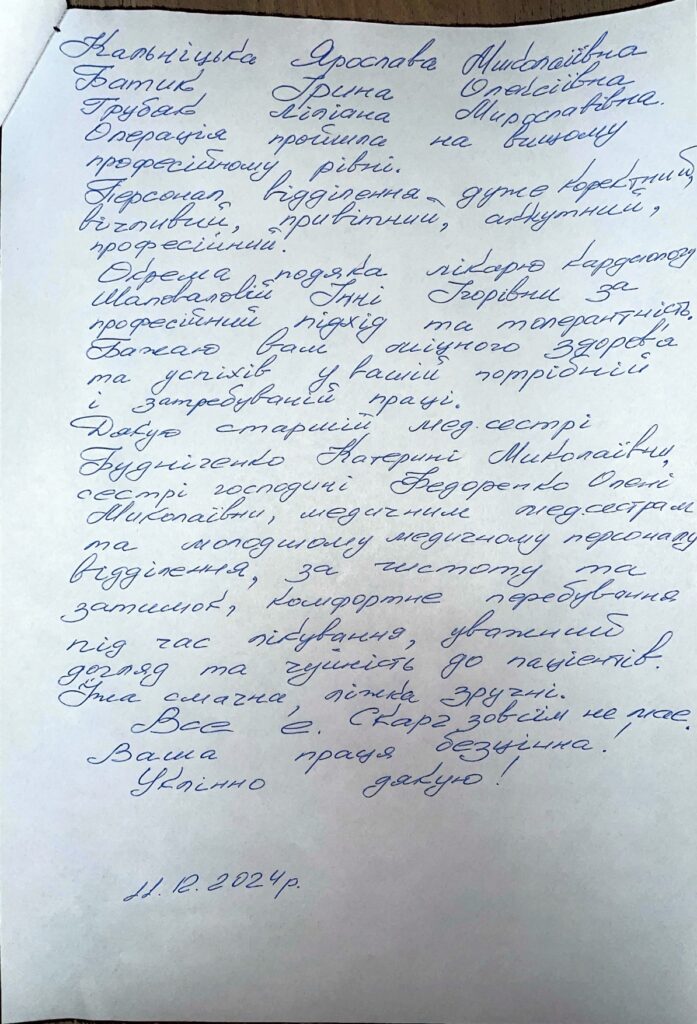 Кальніцька Ярослава Миколаївна
Батик Ірина Олексіївна
Грубяк Ліліана Мирославівна.
Операція пройшла на вищому
професійному рівні.
Персонал відділення дуже коректний,
вічливий, привітний, аккутний,
професійний.
Окрема подяка лікарю кардіологу
Шаповаловій Інні Ігорівни за
професійний підхід та толерантність.
Бажаю вам міцного здоров'я
та успіхів у вашій потрібній
і затребуваній праці.
Дякую старшій мед.сестрі
Будніченко Катерині Миколаївни,
сестрі господині Федоренко Олені
Миколаївни, медичним медсестрам
та молодшому медичному персоналу
відділення, за чистоту та
затишок, комфортне перебування
під час лікування, уважний
догляд та чуйність до пацієнтів.
Їжа смачна, ліжка зручні.
Все є. Скарг зовсім не має.
Ваша праця безцінна!
Уклінно дякую!
11.12.2024р.